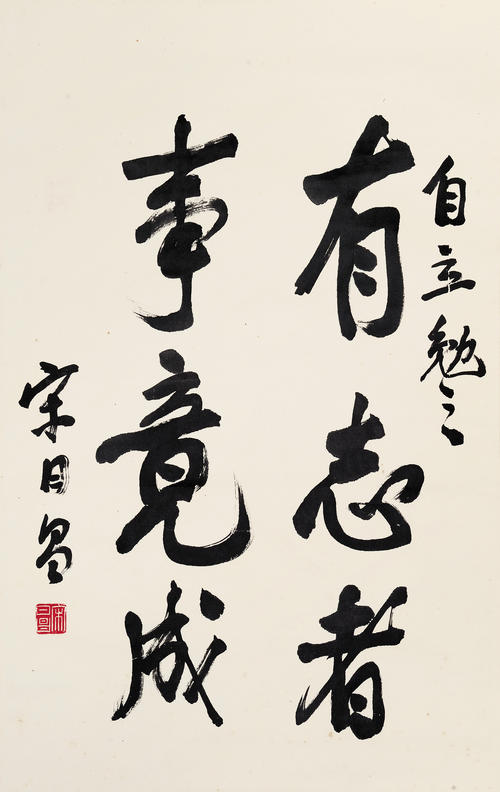 自立勉之
有志者
事竟成
宋日昌